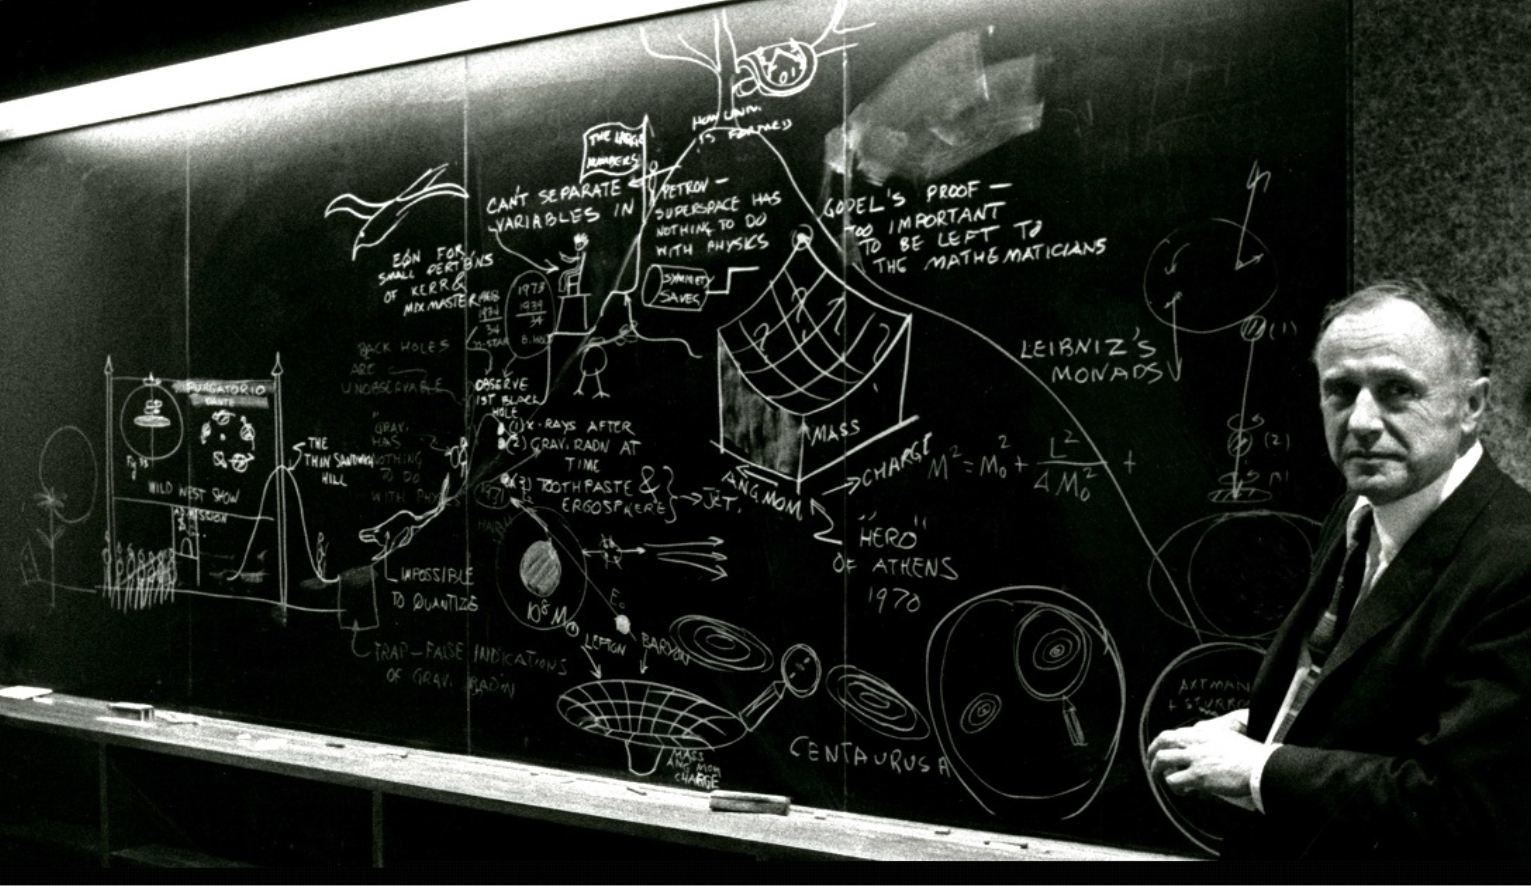 HOW UNIV.
IS FORMED
THE LARGE
NUMBERS
CAN'T SEPARATE
VARIABLES IN
PETROV —
SUPERSPACE HAS
NOTHING TO DO
WITH PHYSICS
SYMMETRY
SAVES
GODEL'S PROOF —
TOO IMPORTANT
TO BE LEFT TO
THE MATHEMATICIANS
EQN FOR
SMALL PERT'BNS
OF KERR &
MIXMASTER
1973
1939
34
1934
34
N-STAR
B. HOLE
BLACK HOLES
ARE
UNOBSERVABLE
OBSERVE
1ST BLACK
HOLE
(1) X-RAYS AFTER
(2) GRAV. RADN AT
TIME
(3) TOOTHPASTE &
ERGOSPHERE } → JET.
"GRAV.
HAS
NOTHING
TO DO
WITH PHYS
PURGATORIO
DANTE
WILD WEST SHOW
ADMISSION
THE
THIN SANDWICH
HILL
IMPOSSIBLE
TO QUANTIZE
TRAP — FALSE INDICATIONS
OF GRAV. RADN
MASS
CHARGE
ANG MOM.
M² = M₀² + L²/4M₀² +
"HERO"
OF ATHENS
1970
LEIBNIZ'S
MONADS
(1)
(2)
10⁸ M⊙
E₀
LEPTON
BARYON
MASS
ANG MOM
CHARGE
CENTAURUS A
AXTMAN